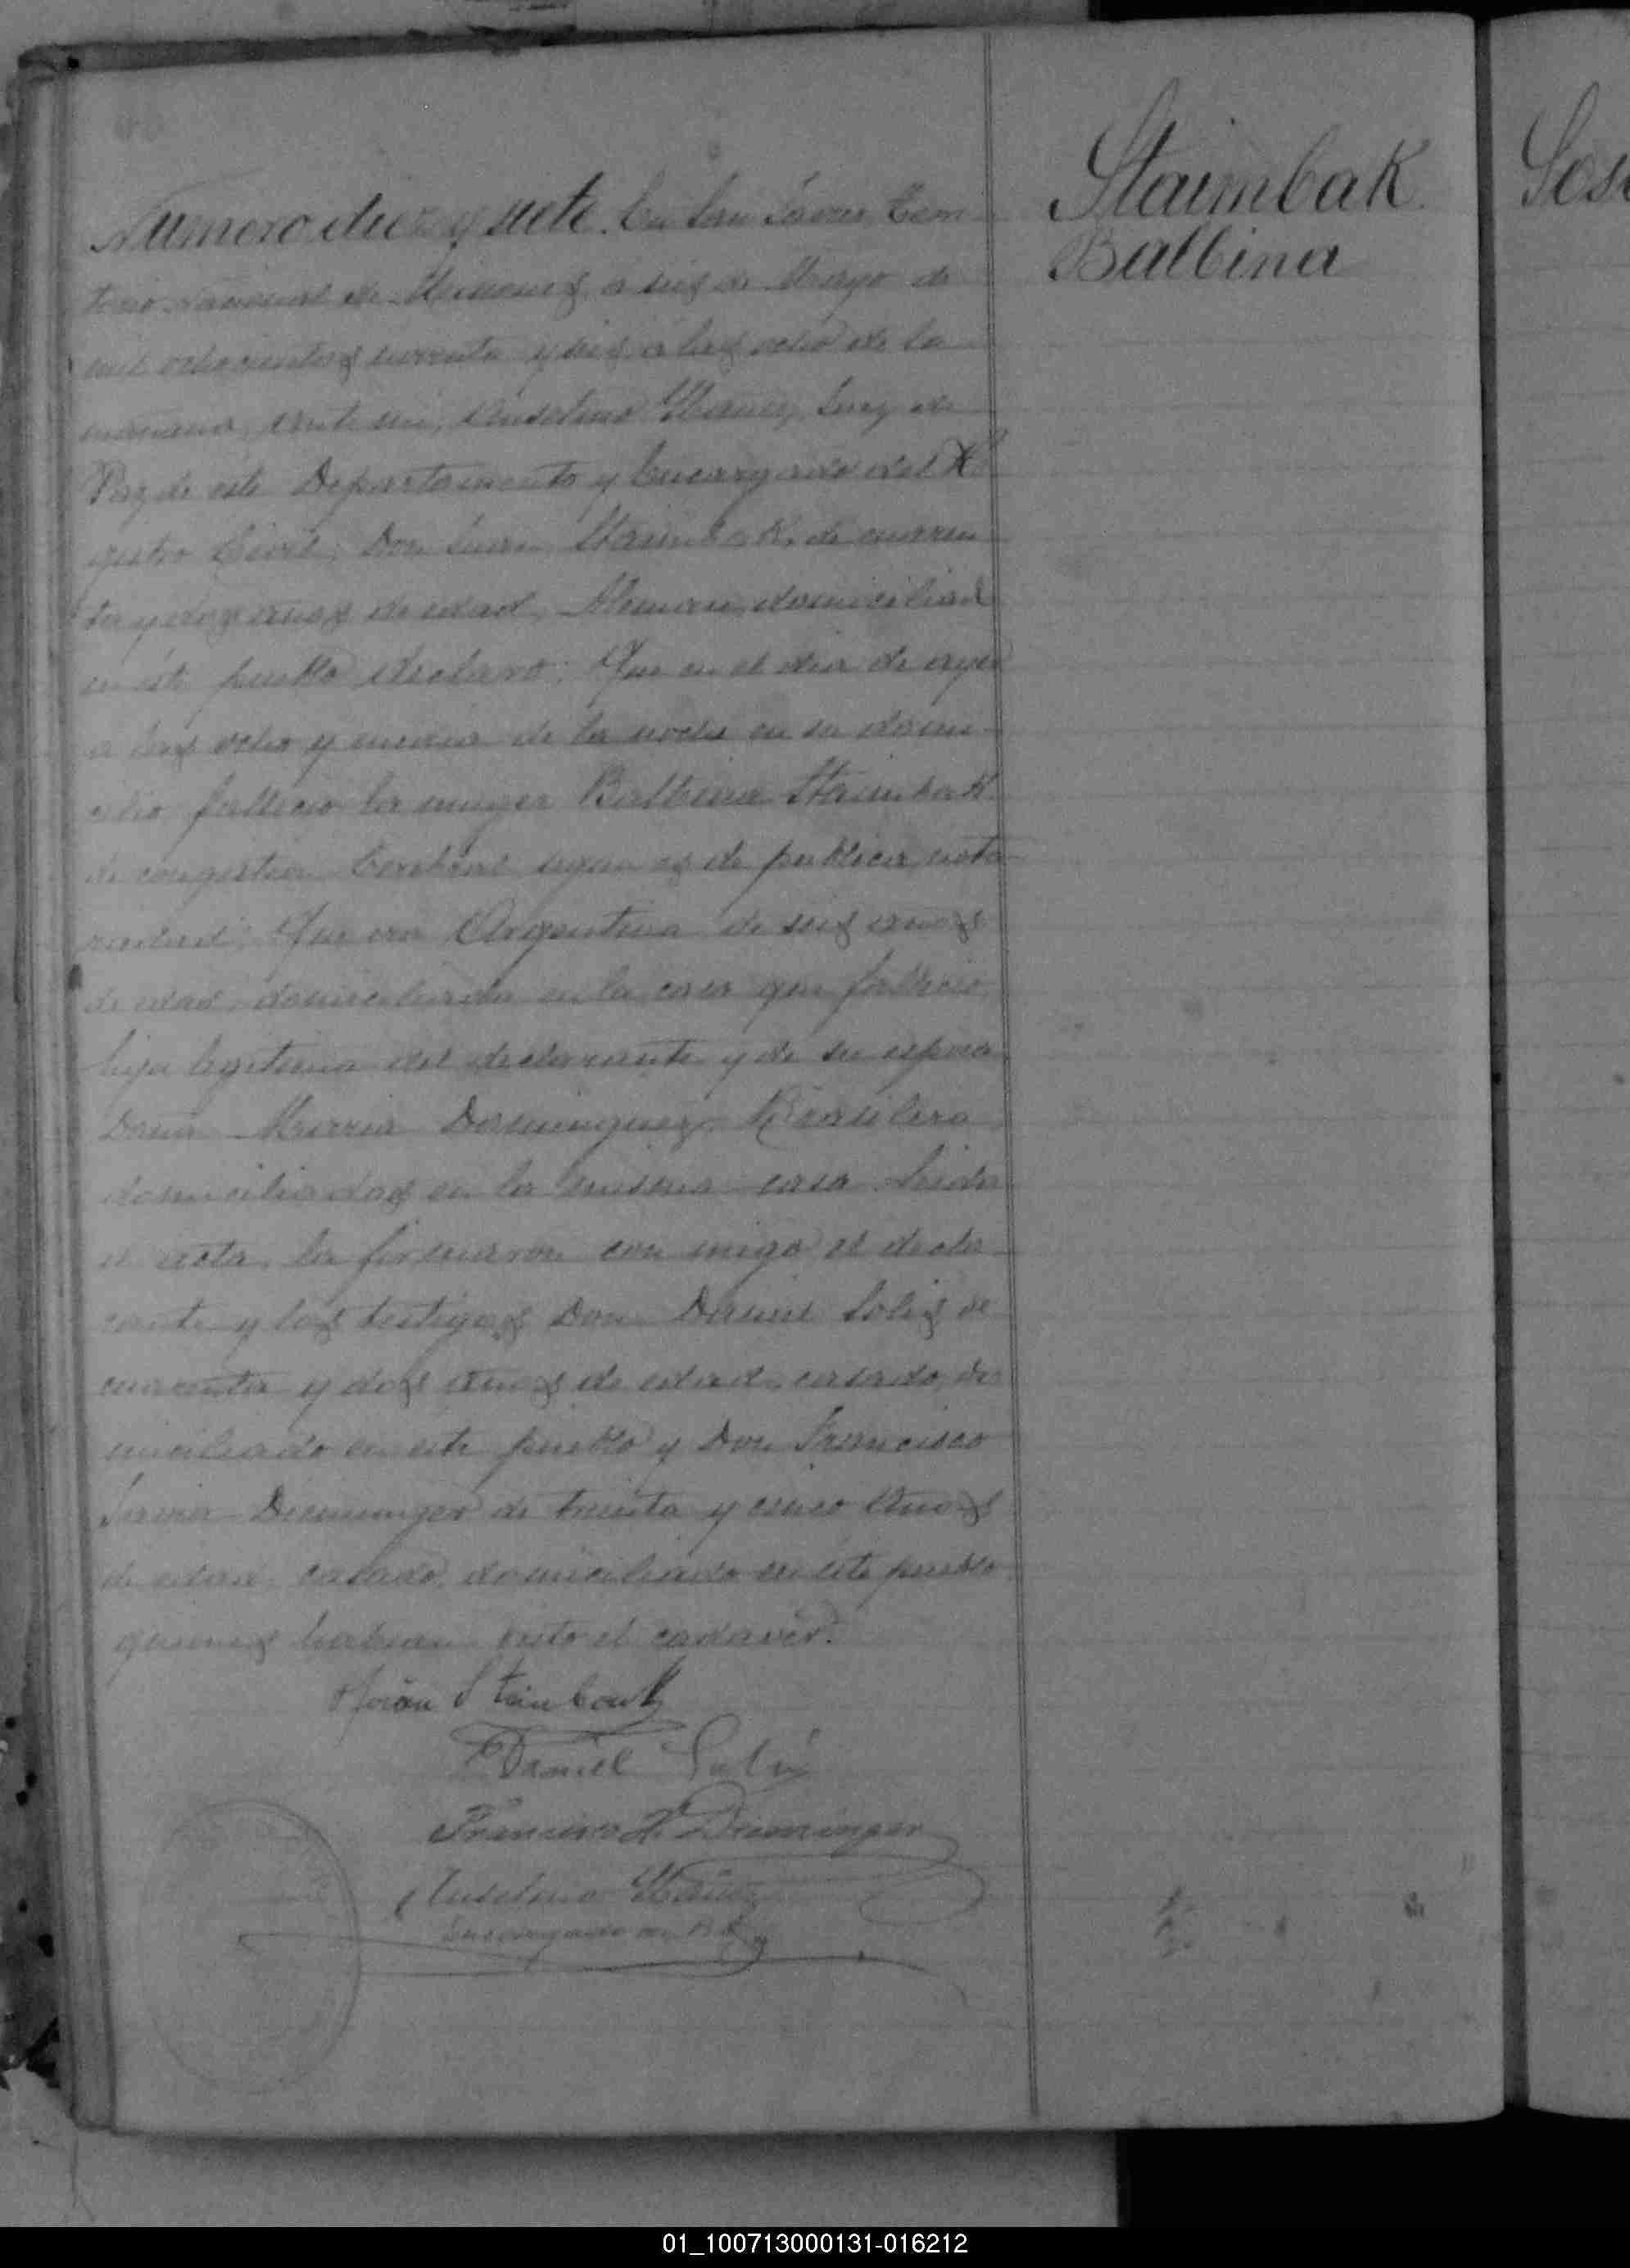 Numero diez y siete. En San Javier, Terri
torio Nacional de Misiones, a seis de Mayo de
mil ochocientos noventa y seis a las ocho de la
mañana, ante mi, Anselmo Juez de
Paz de este Departamento y Encargado del Re
gistro Civil; Don Juan Staimbak, de cuaren
ta y dos años de edad, Aleman, domiciliado
en éste pueblo declaró: Que en el dia de ayer
a las ocho y media de la noche en su domi
cilio fallecio la muger Balbina Staimbak
de congestion Cerebral segun es de publica noto
riedad; Que era Argentina de seis años
de edad, domiciliada en la casa que fallecio,
hija legitima del declarante y de su esposa
Doña Maria Dominguez, Brasilera
domiciliados en la misma casa. Leida
el acta, la firmaron con migo el decla
rante y los testigos Don Daniel Solis de
cuarenta y dos años de edad, casado, do
miciliado en este pueblo y Don Francisco
Javier Dieminger de treinta y cinco años
de edad, casado, domiciliado en éste pueblo
quienes habian visto el cadaver.
Steinbach
Daniel Solis
Francisco X. Dieminger
Anselmo
Encargado
Staimbak
Balbina
01_100713000131-016212